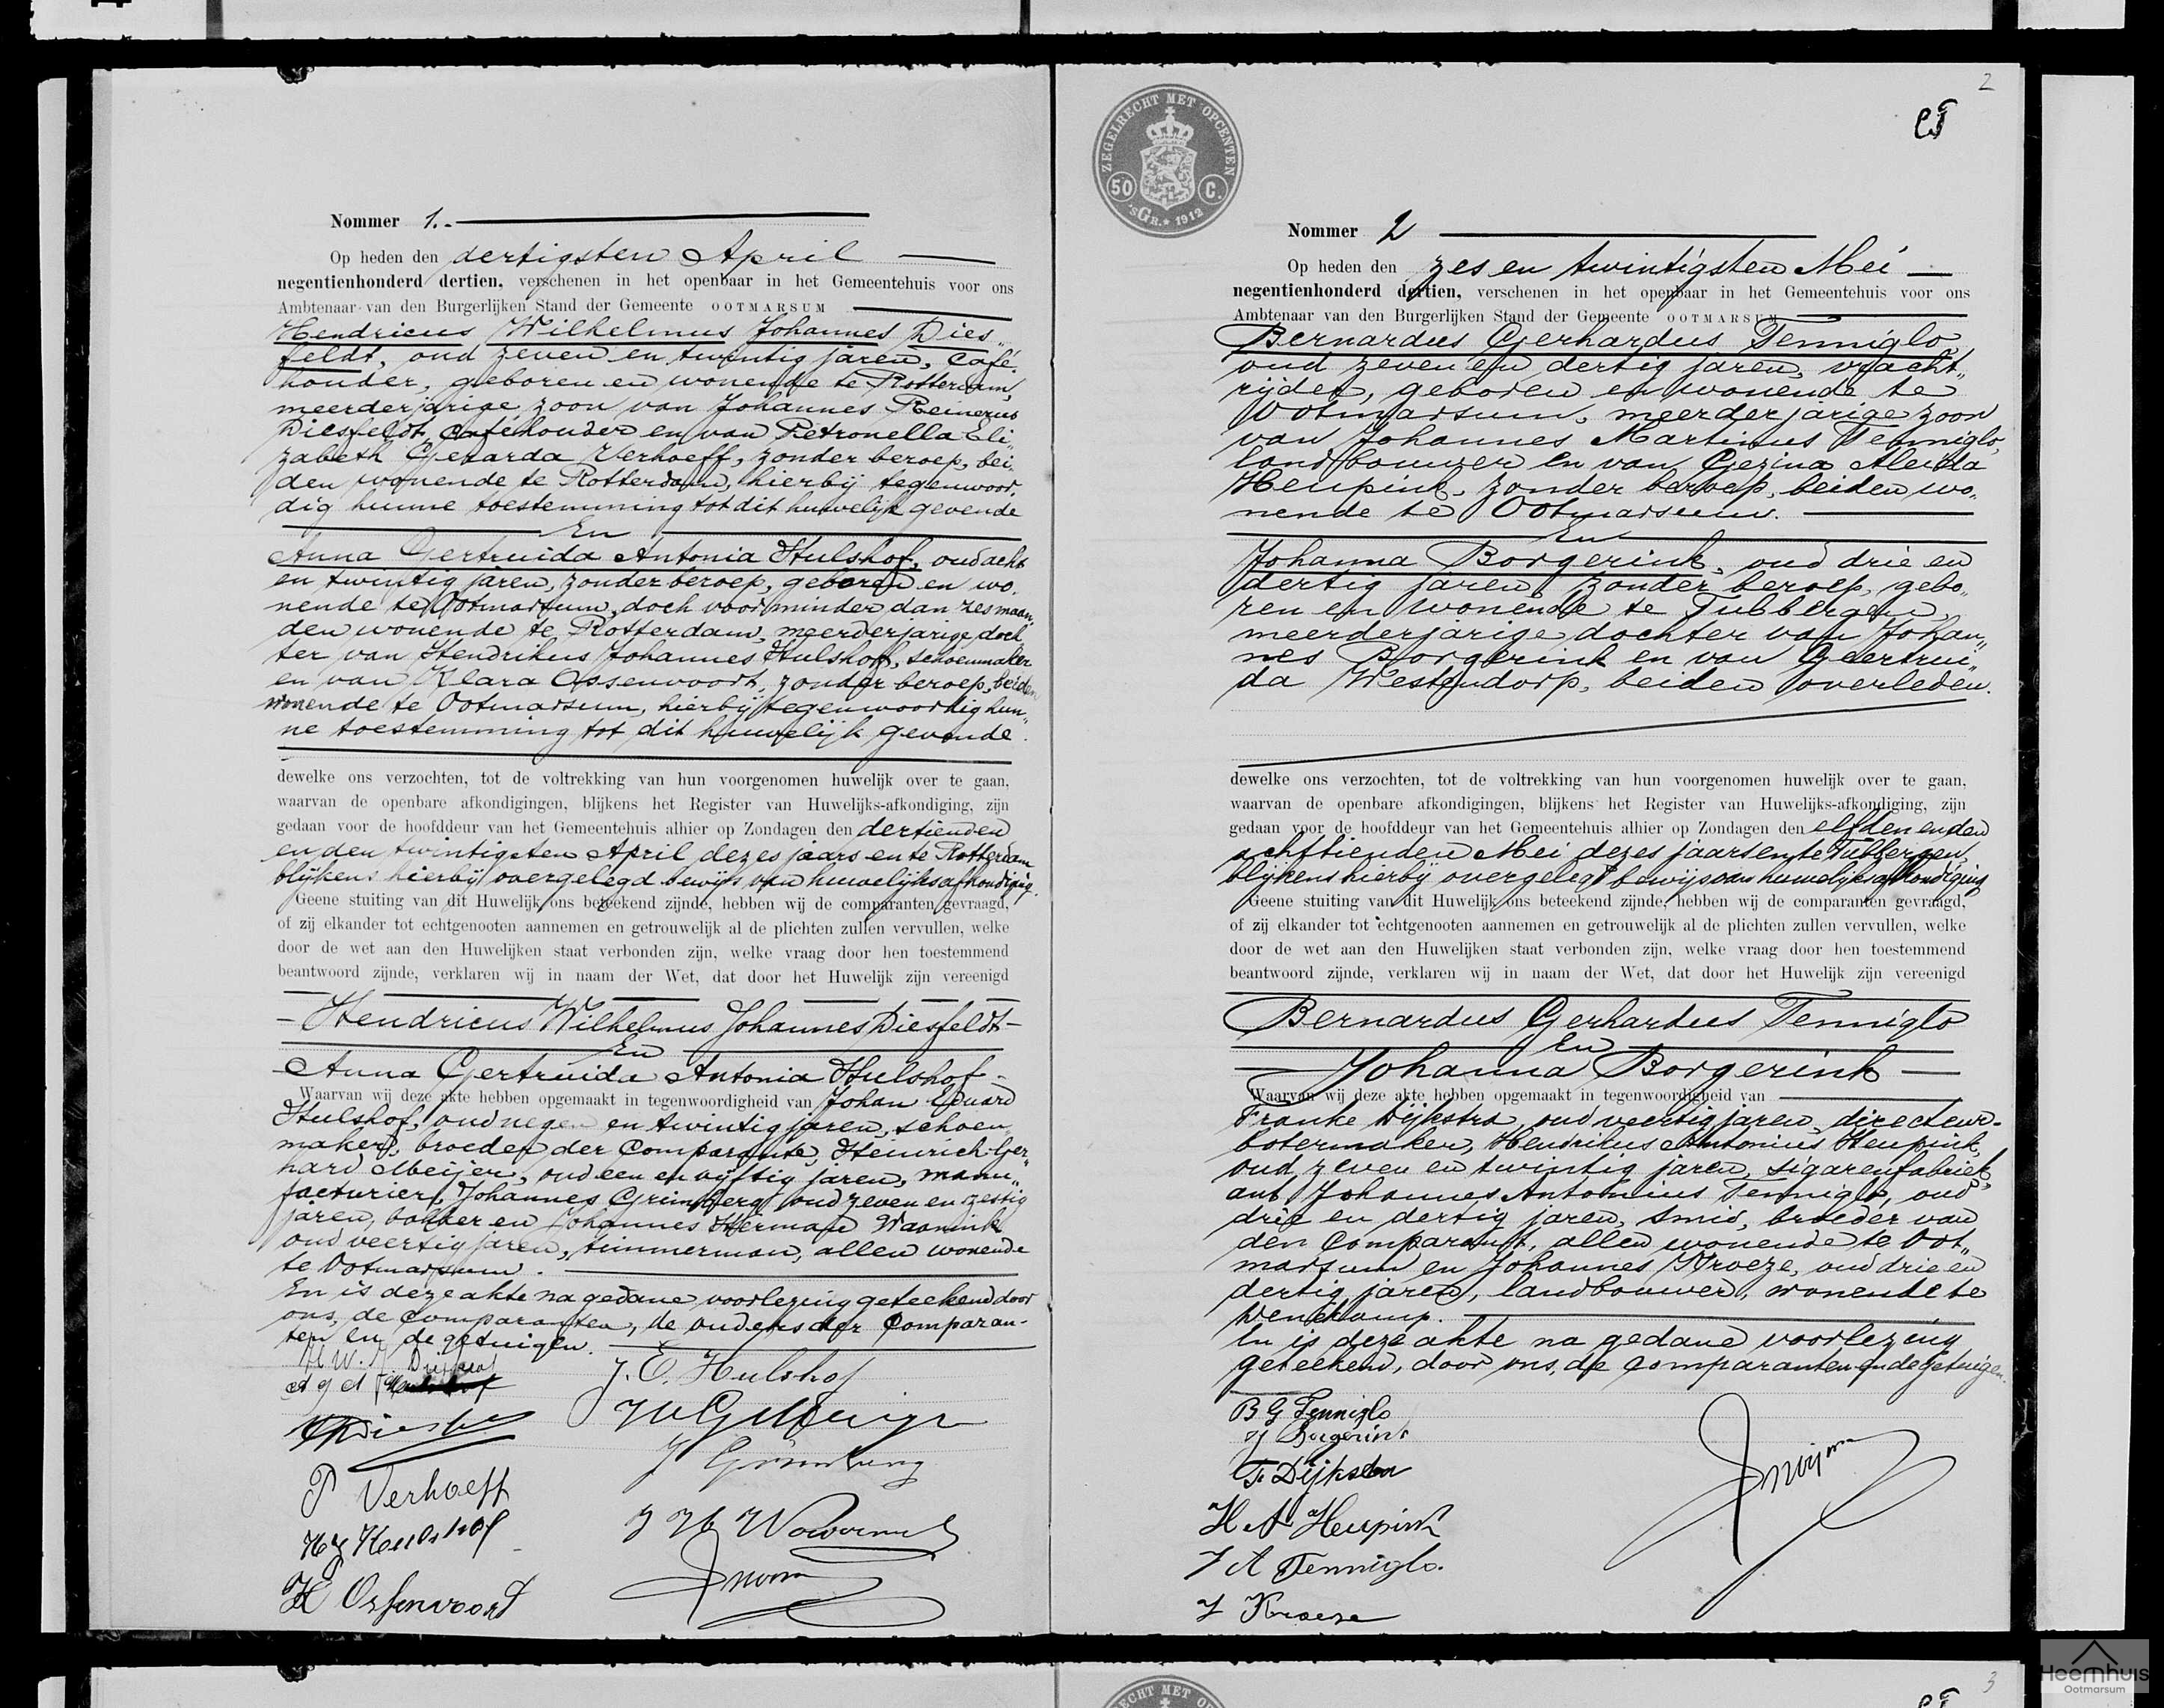 Nommer 1.-
Op heden den dertigsten April
negentienhonderd dertien, verschenen in het openbaar in het Gemeentehuis voor ons
Ambtenaar van den Burgerlijken Stand der Gemeente OOTMARSUM
Hendricus Wilhelmus Johannes Dies„
feldt, oud zeven en twintig jaren, café„
houder, geboren en wonende te Rotterdam,
meerderjarige zoon van Johannes Reinerus
Diesfeldt, caféhouder en van Petronella Eli„
zabeth Gerarda Verhoeff, zonder beroep, bei„
den wonende te Rotterdam, hierbij tegenwoor„
dig hunne toestemming tot dit huwelijk gevende
En
Anna Gertruida Antonia Hulshof, oud acht
en twintig jaren, zonder beroep, geboren en wo„
nende te Ootmarsum, doch voor minder dan zes maan„
den wonende te Rotterdam, meerderjarige doch
ter van Hendrikus Johannes Hulshof, schoenmaker
en van Klara Ossenvoort, zonder beroep, beiden
wonende te Ootmarsum, hierbij tegenwoordig hun„
ne toestemming tot dit huwelijk gevende.
dewelke ons verzochten, tot de voltrekking van hun voorgenomen huwelijk over te gaan,
waarvan de openbare afkondigingen, blijkens het Register van Huwelijks-afkondiging, zijn
gedaan voor de hoofddeur van het Gemeentehuis alhier op Zondagen den dertienden
en den twintigsten April dezes jaars en te Rotterdam
blijkens hierbij overgelegd bewijs van huwelijksafkondiging.
Geene stuiting van dit Huwelijk ons beteekend zijnde, hebben wij de comparanten gevraagd,
of zij elkander tot echtgenooten aannemen en getrouwelijk al de plichten zullen vervullen, welke
door de wet aan den Huwelijken staat verbonden zijn, welke vraag door hen toestemmend
beantwoord zijnde, verklaren wij in naam der Wet, dat door het Huwelijk zijn vereenigd
- Hendricus Wilhelmus Johannes Diesfeldt -
En
- Anna Gertruida Antonia Hulshof -
Waarvan wij deze akte hebben opgemaakt in tegenwoordigheid van Johan Eduard
Hulshof, oud negen en twintig jaren, schoen„
maker, broeder der Comparante, Heinrich Ger„
hard Meijer, oud een en vijftig jaren, manu„
facturier, Johannes Grünberg oud zeven en zestig
jaren, bakker en Johannes Herman Waanink
oud veertig jaren, timmerman, allen wonende
te Ootmarsum.
En is deze akte na gedane voorlezing geteekend door
ons, de comparanten, de ouders der Comparan-
ten en de getuigen.
J. E. Hulshof
P Verhoeff
J Grünberg
H J Hulshof
K Ossenvoort
2
ZEGELRECHT MET OPCENTEN
50 C.
'sGR. * 1912
Nommer 2
Op heden den zes en twintigsten Mei
negentienhonderd dertien, verschenen in het openbaar in het Gemeentehuis voor ons
Ambtenaar van den Burgerlijken Stand der Gemeente OOTMARSUM
Bernardus Gerhardus Tenniglo
oud zeven en dertig jaren, vracht„
rijder, geboren en wonende te
Ootmarsum, meerderjarige zoon
van Johannes Martinus Tenniglo,
landbouwer en van Gezina Aleida
Heupink, zonder beroep, beiden wo„
nende te Ootmarsum.
En
Johanna Borgerink, oud drie en
dertig jaren, zonder beroep, gebo„
ren en wonende te Tubbergen,
meerderjarige dochter van Johan„
nes Borgerink en van Geertrui„
da Westendorp, beiden overleden.
dewelke ons verzochten, tot de voltrekking van hun voorgenomen huwelijk over te gaan,
waarvan de openbare afkondigingen, blijkens het Register van Huwelijks-afkondiging, zijn
gedaan voor de hoofddeur van het Gemeentehuis alhier op Zondagen den elfden en den
achttienden Mei dezes jaars en te Tubbergen,
blijkens hierbij overgelegd bewijs van huwelijksafkondiging
Geene stuiting van dit Huwelijk ons beteekend zijnde, hebben wij de comparanten gevraagd,
of zij elkander tot echtgenooten aannemen en getrouwelijk al de plichten zullen vervullen, welke
door de wet aan den Huwelijken staat verbonden zijn, welke vraag door hen toestemmend
beantwoord zijnde, verklaren wij in naam der Wet, dat door het Huwelijk zijn vereenigd
Bernardus Gerhardus Tenniglo
En
Johanna Borgerink
Waarvan wij deze akte hebben opgemaakt in tegenwoordigheid van
Franke Dijkstra, oud veertig jaren, directeur-
botermaker, Hendrikus Antonius Heupink,
oud zeven en twintig jaren, sigarenfabriek„
ant, Johannes Antonius Tenniglo, oud
drie en dertig jaren, smid, broeder van
den Comparant, allen wonende te Oot„
marsum en Johannes Kroeze, oud drie en
dertig jaren, landbouwer, wonende te
Denekamp.
En is deze akte na gedane voorlezing
geteekend, door ons, de comparanten en de getuigen.
B G Tenniglo
J Borgerink
F. Dijkstra
H A Heupink
J A Tenniglo.
J Kroeze
3
Heemhuis
Ootmarsum